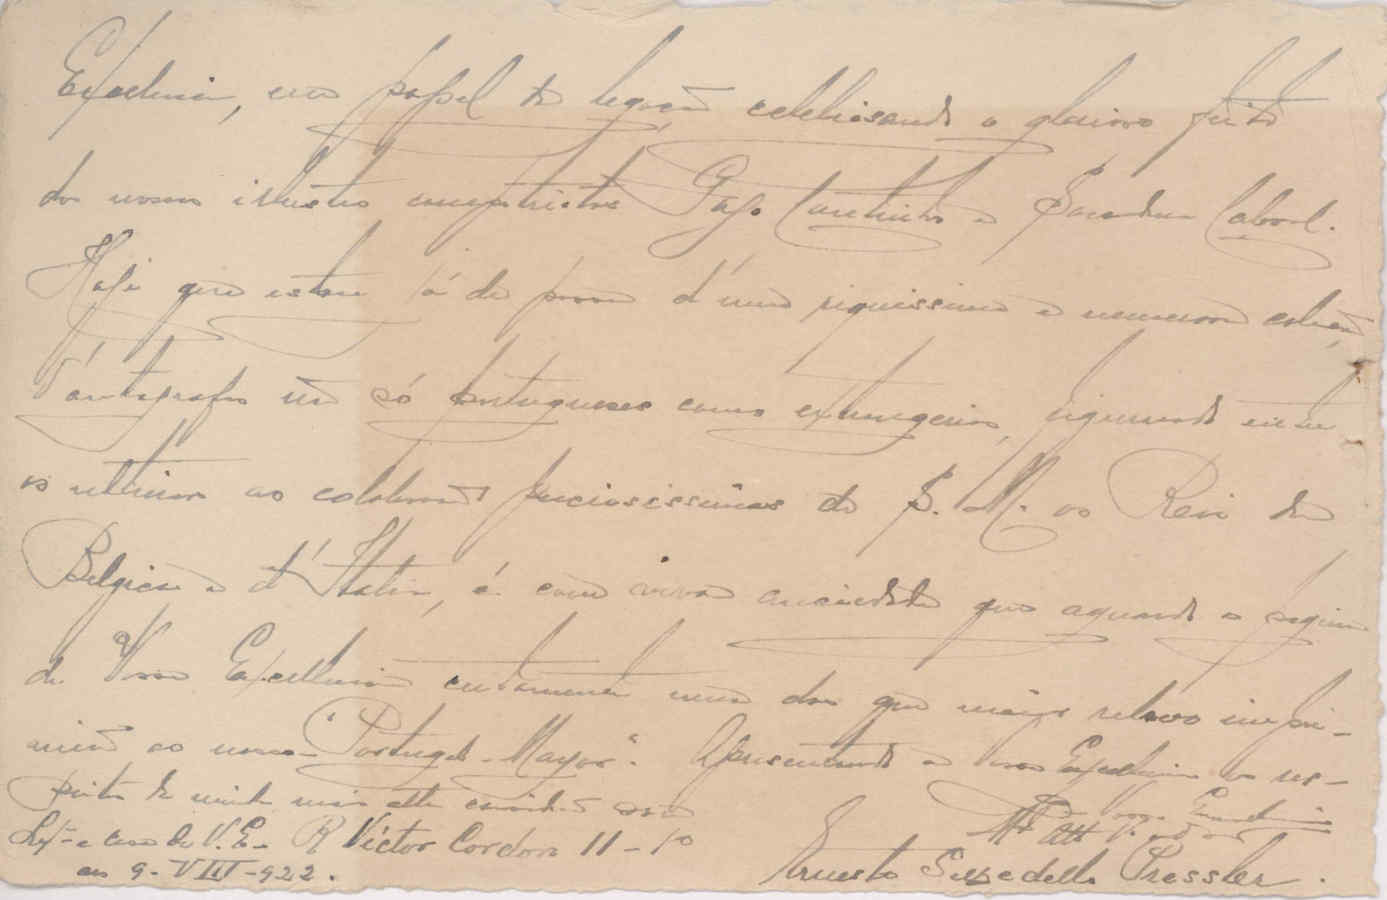 Excellencia, um papel de legação celebrisando o glorioso feito
dos nossos illustres compatriotas Gago Coutinho e Sacadura Cabral.
Hoje que estou já de posse d'uma riquissima e numerosa colecção
d'autografos não só portugueses como extrangeiros, figurando entre
os ultimos as colaborações preciosissimas de S. M. os Reis da
Belgica e d'Italia, é com viva anciedade que aguardo a pagina
de Vossa Excellencia certamente uma das que maior relevo impri-
mirá ao nosso "Portugal-Mayor". Apresentando a Vossa Excellencia os res-
peitos da minha mais alta consideração sou
De Vossa Excellencia
Mt.º Att.º V.
Lxª e casa de V. E. R Victor Cordon 11-1º
Ernesto Sezedello Pressler.
aos 9-VIII-922.